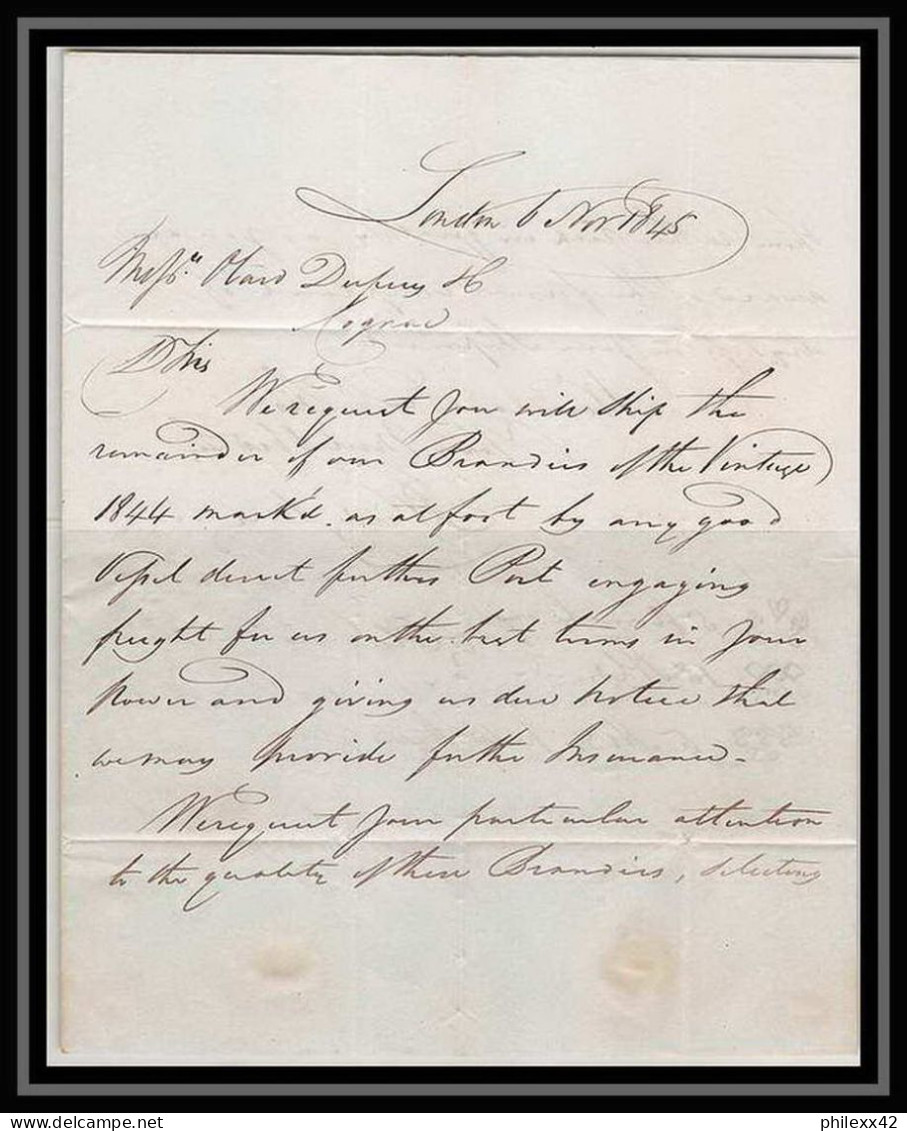 London 6 Nov 1845
Messrs Otard Dupuy & Co
Cognac
D Sirs
We request you will ship the
remainder of our Brandies of the Vintage
1844 mark'd as at foot by any good
Vessel direct for this Port engaging
freight for us on the best terms in your
power and giving us due notice that
we may provide for the Insurance –
We request your particular attention
to the quality of these Brandies, selecting
philexx42